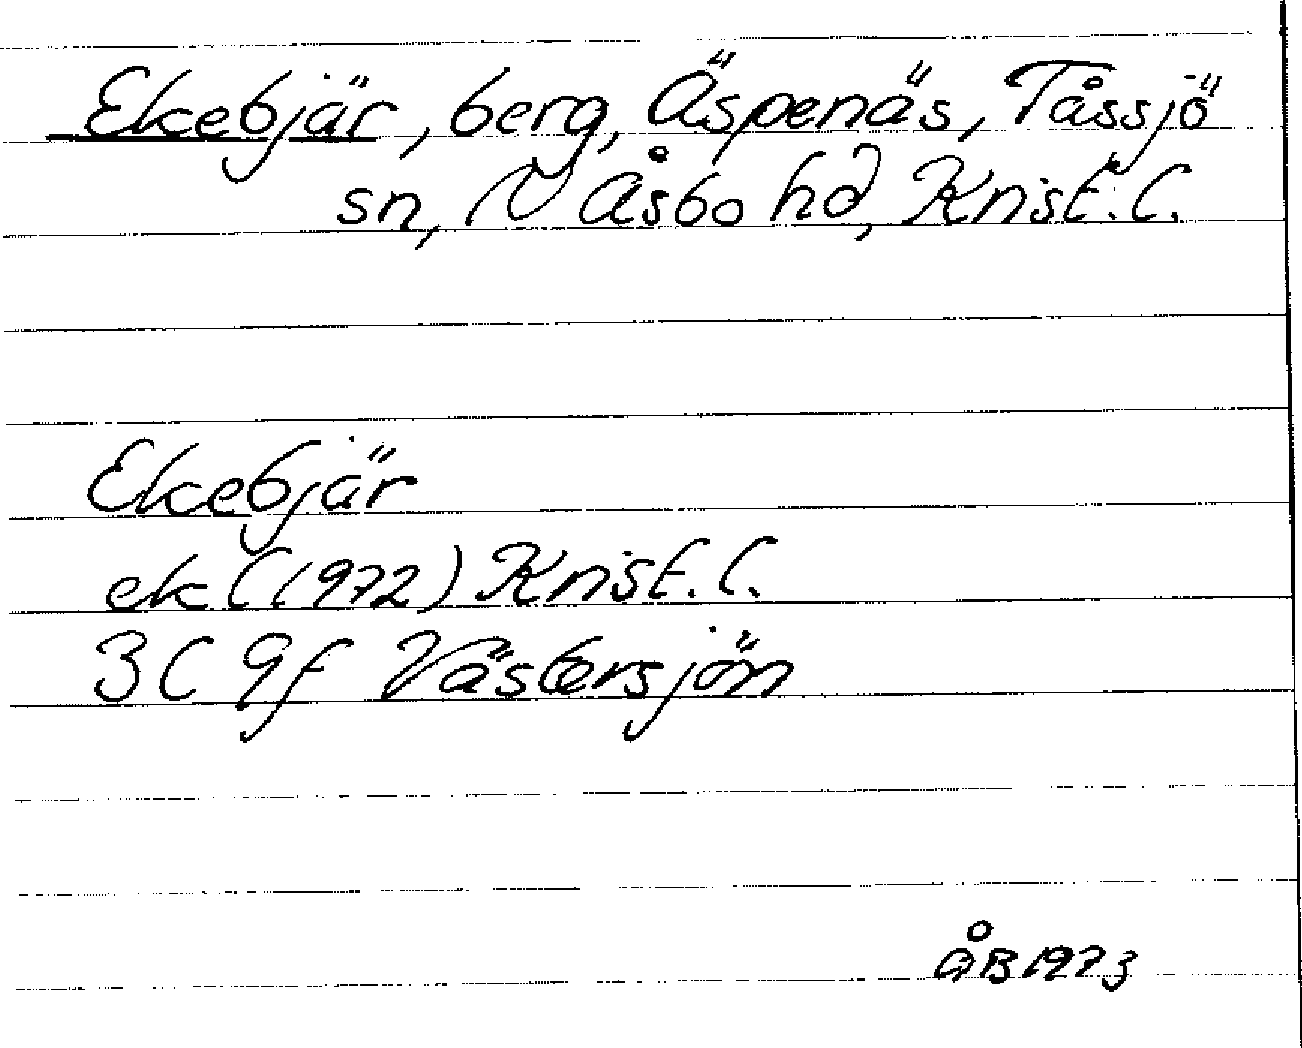 Ekebjär, berg, Äspenäs, Tåssjö
sn, N Åsbo hd, Krist. l.
Ekebjär
ek (1972) Krist. l.
3C 9f Västersjön
ÅB 1973